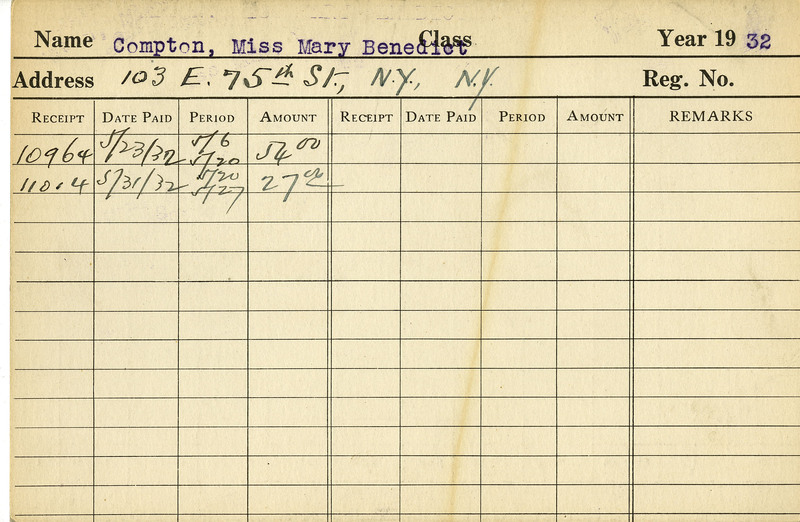 Name Compton, Miss Mary Benedict Class Year 19 32
Address 103 E. 75th St., N.Y., N.Y. Reg. No.
RECEIPT DATE PAID PERIOD AMOUNT RECEIPT DATE PAID PERIOD AMOUNT REMARKS
5/6
10964 5/23/32 5/20 54 00
5/20
11014 5/31/32 5/27 27 00